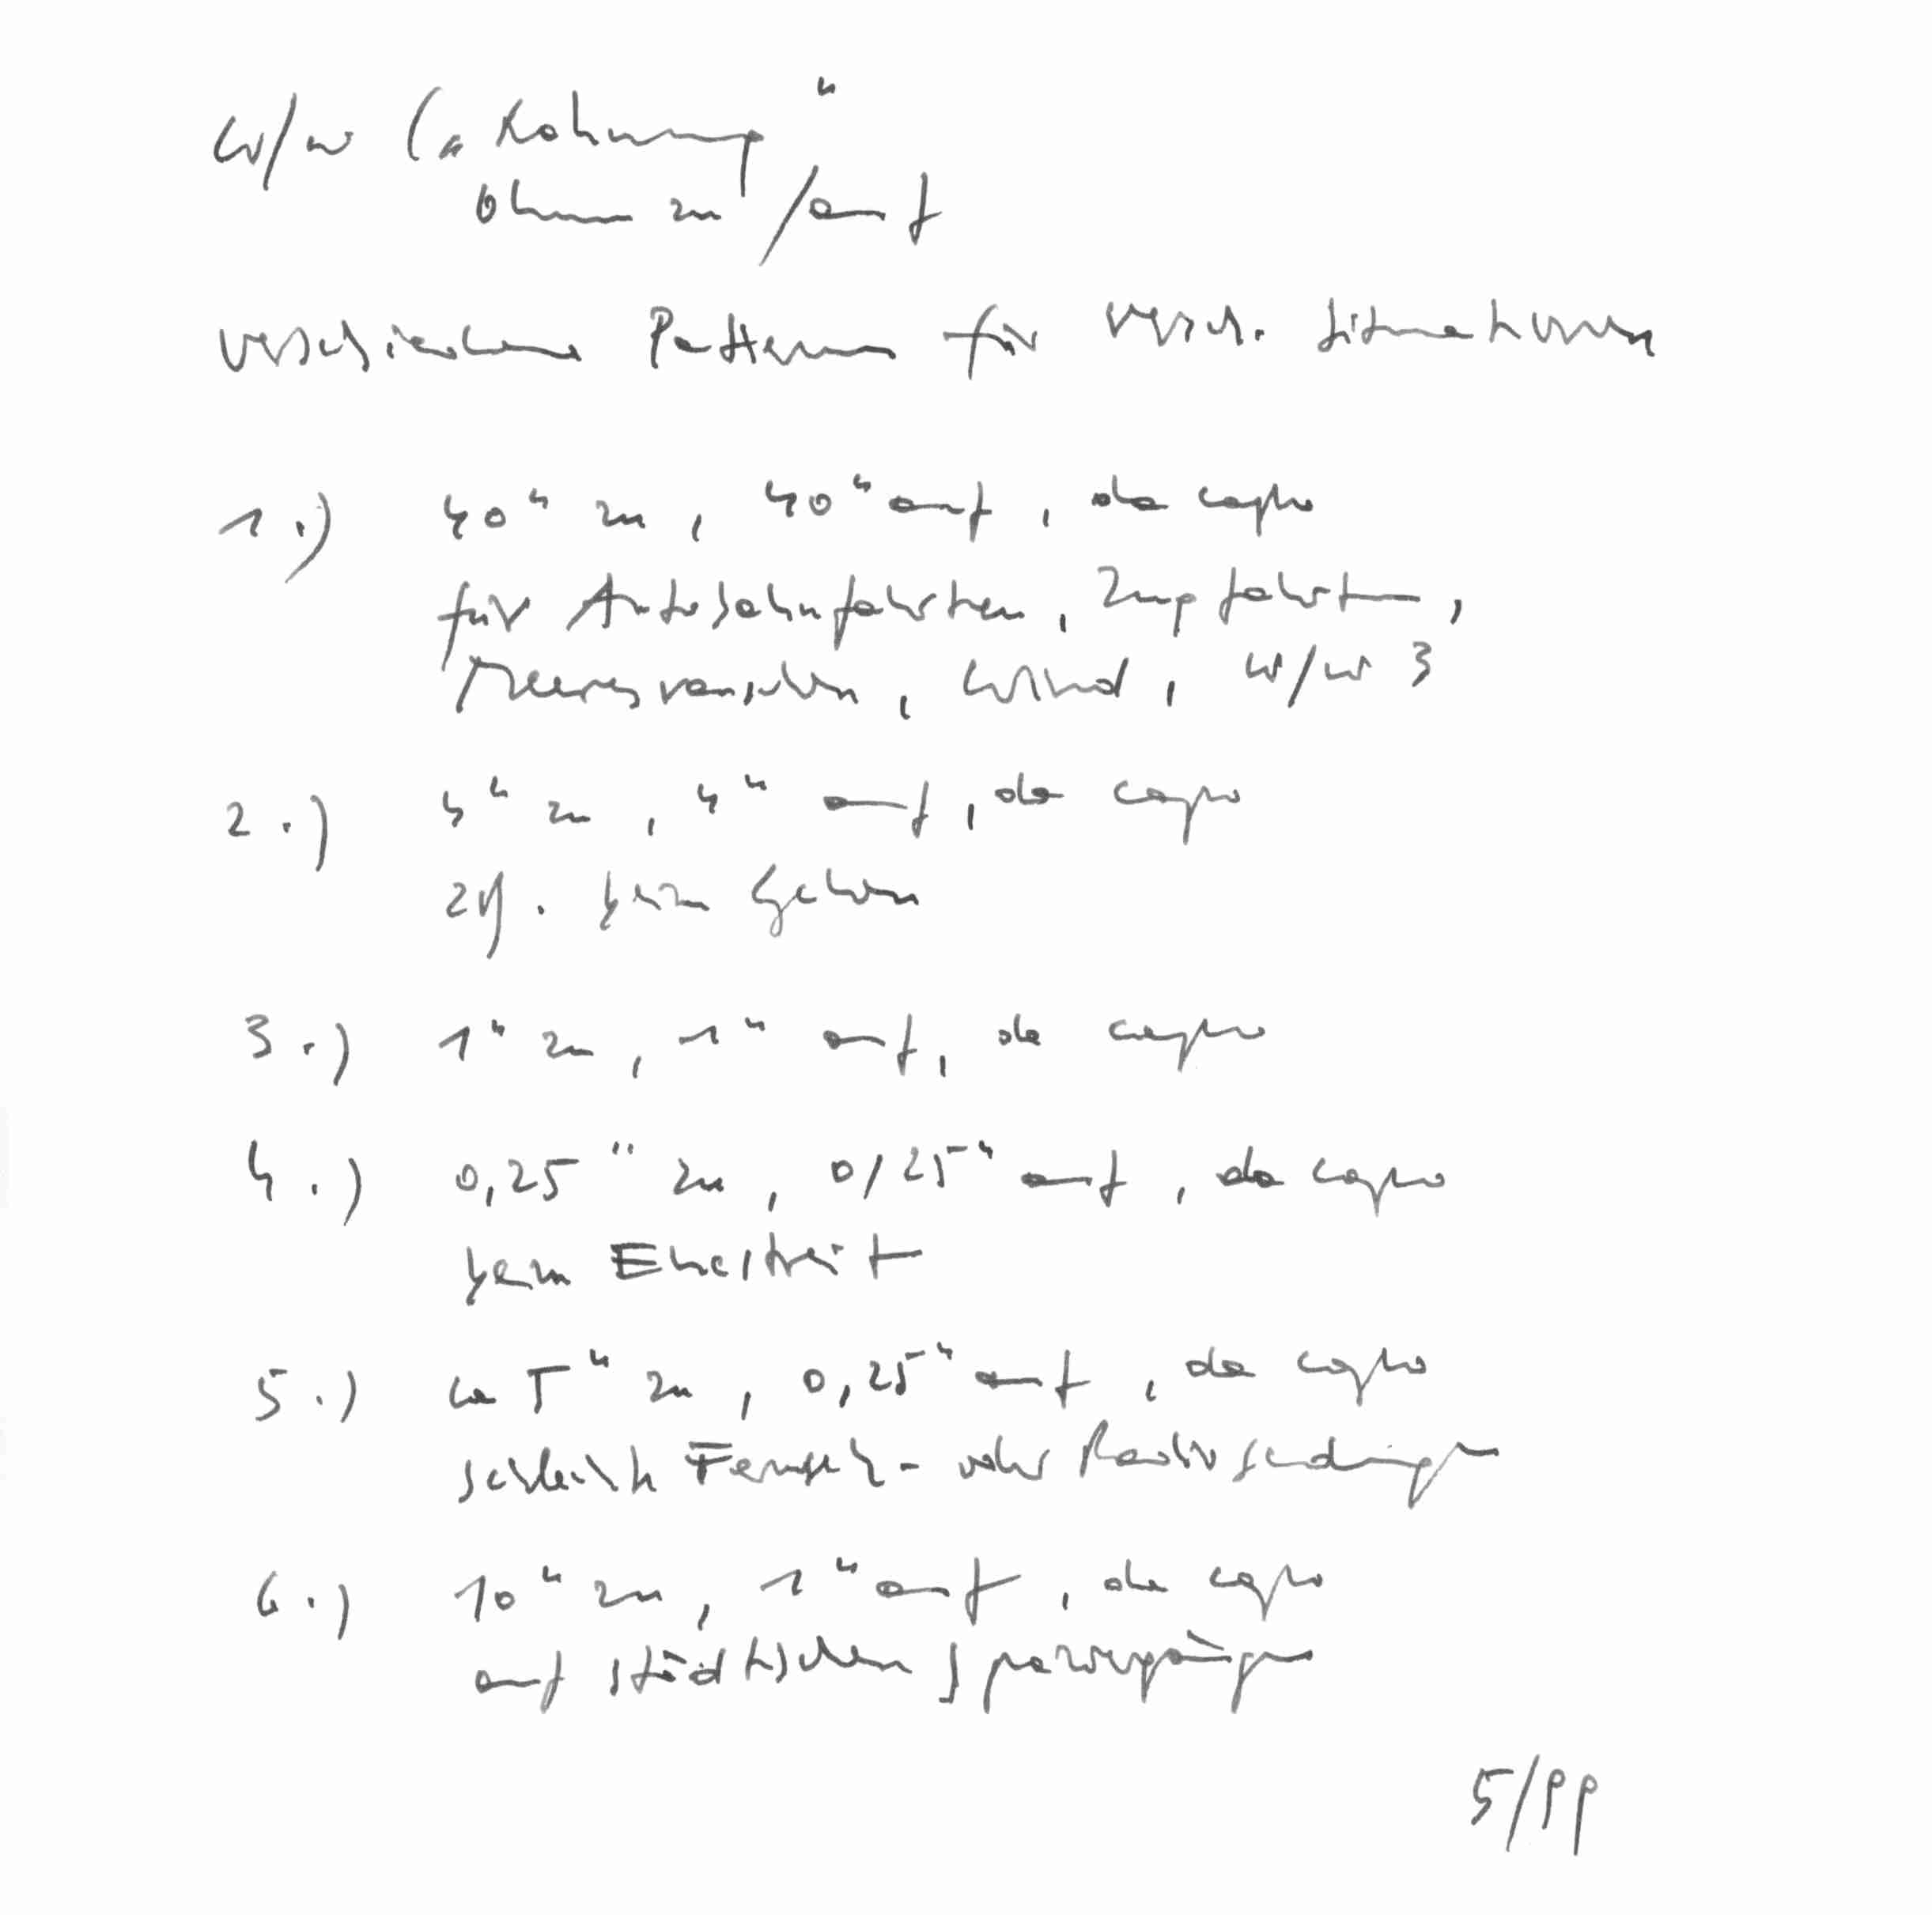 w/w („Rohrung“
Ohren zu/auf
verschiedene Pattern für versch. Situationen
1.) 40" zu, 40" auf, da capo
für Autobahnfahrten, Zugfahrten,
Meeresrauschen, Wind, w/w 3
2.) 4" zu, 4" auf, da capo
zB. beim Gehen
3.) 1" zu, 1" auf, da capo
4.) 0,25" zu, 0,25" auf, da capo
beim Ehestreit
5.) ca 5" zu, 0,25" auf, da capo
schlecht Fernseh- oder Radiosendungen
6.) 10" zu, 1" auf, da capo
auf städtischen Spaziergängen
5/99